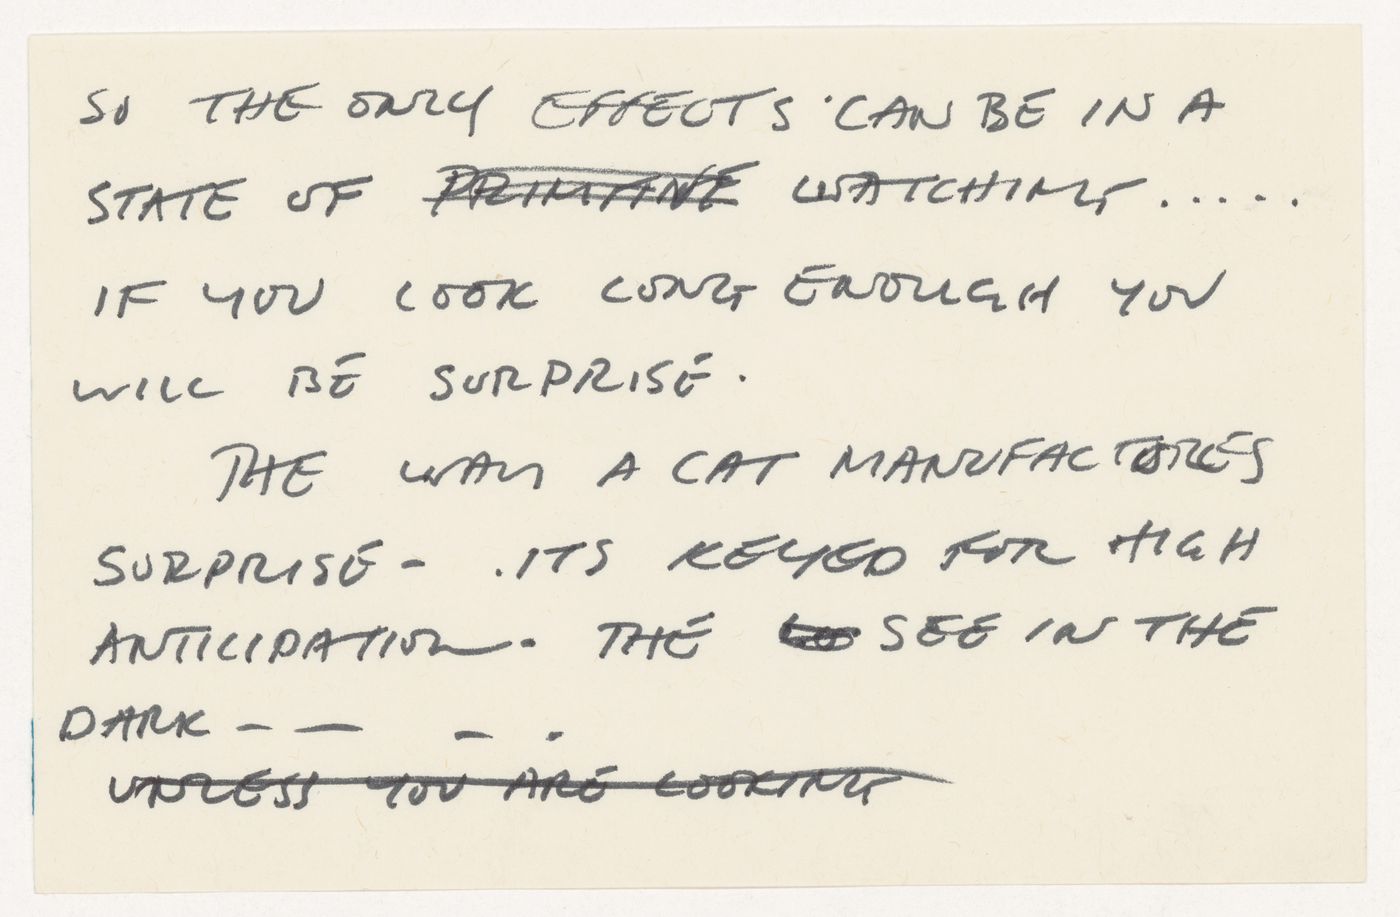 SO THE ONLY EFFECTS CAN BE IN A
STATE OF PRIMITIVE WATCHING.....
IF YOU LOOK LONG ENOUGH YOU
WILL BE SURPRISE.
THE WAY A CAT MANUFACTURES
SURPRISE - .ITS KEYED FOR HIGH
ANTICIPATION - THE SEE IN THE
DARK — — – .
UNLESS YOU ARE LOOKING